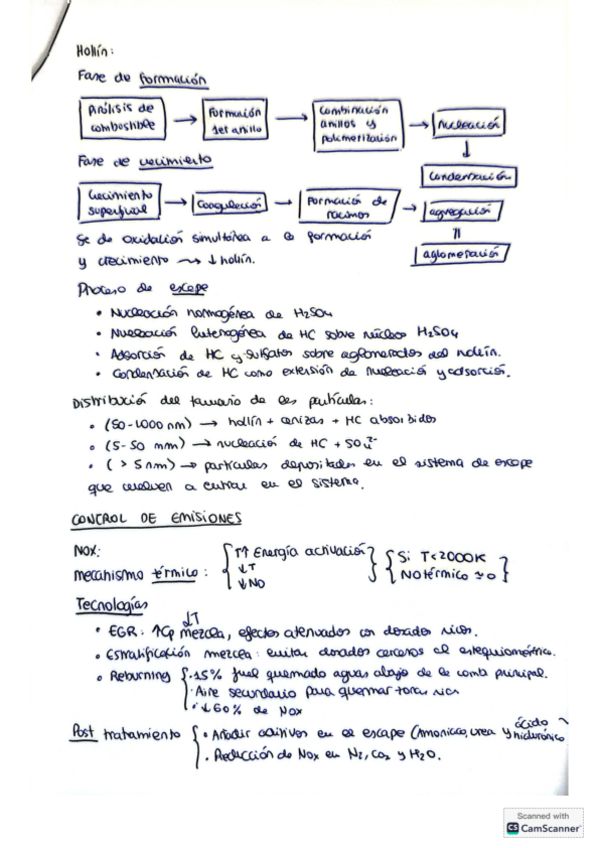 Hollín:
Fase de formación
Pirólisis de combustible → Formación 1er anillo → Combinación anillos y polimerización → Nucleación
↓
Fase de crecimiento
Condensación
Crecimiento superficial → Coagulación → Formación de racimos → agregación
=
aglomeración
Se da oxidación simultánea a la formación
y crecimiento → ↓ hollín.
Proceso de escape
• Nucleación homogénea de H2SO4
• Nucleación heterogénea de HC sobre núcleos H2SO4
• Adsorción de HC y sulfatos sobre aglomerados del hollín.
• Condensación de HC como extensión de nucleación y adsorción.
Distribución del tamaño de las partículas:
• (50-1000 nm) → hollín + cenizas + HC absorbidos
• (5-50 nm) → nucleación de HC + SO4²⁻
• ( > 5nm) → partículas depositadas en el sistema de escape
que vuelven a entrar en el sistema.
CONTROL DE EMISIONES
NOx:
mecanismo térmico: { ↑↑ Energía activación ↓T ↓NO } { Si T<2000K NO térmico ≃ 0 }
Tecnologías
↓T
• EGR: ↑Cp mezcla, efectos atenuados con dosados ricos.
• Estratificación mezcla: evitar dosados cercanos al estequiométrico.
• Reburning { • 15% fuel quemado aguas abajo de la comb principal.
• Aire secundario para quemar zonas rica
• ↓60% de NOx
Post tratamiento { • Añadir aditivos en el escape (Amoniaco, urea y ácido
• Reducción de NOx en N2, CO2 y H2O.
Scanned with
CS CamScanner